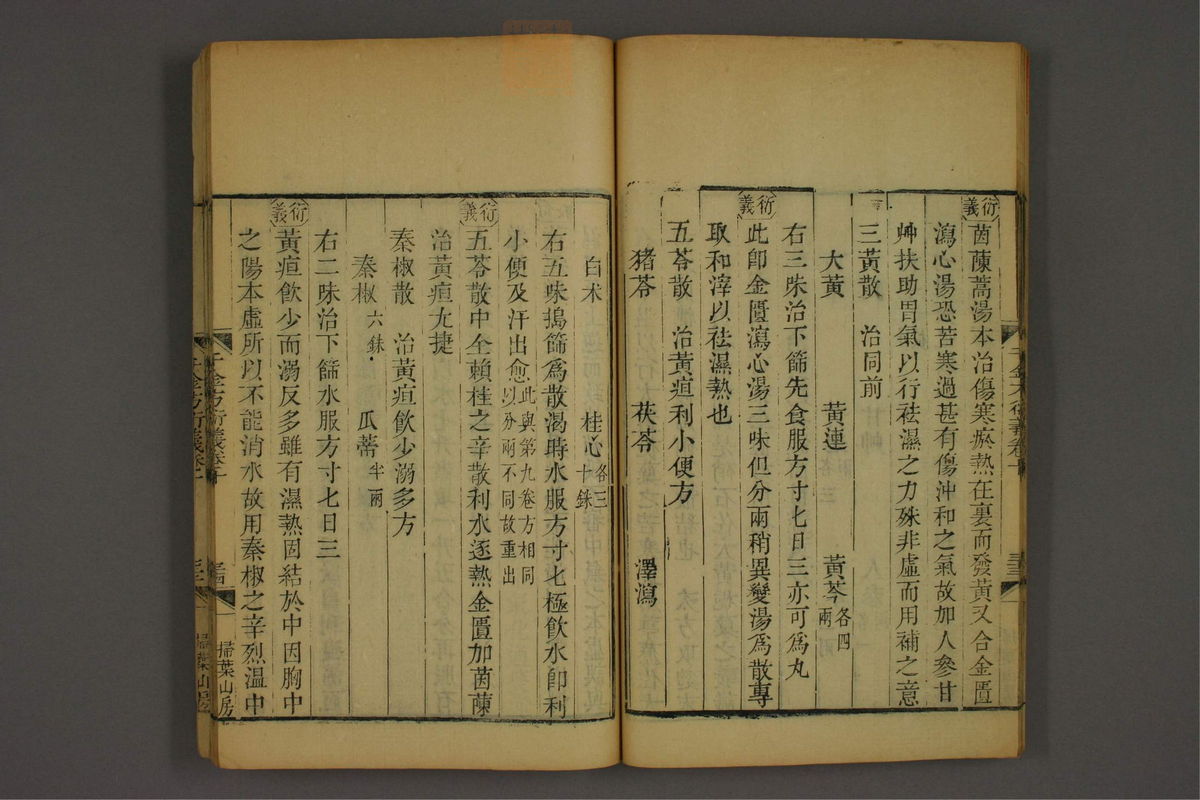 衍義茵蔯蒿湯本治傷寒瘀熱在裏而發黃又合金匱
瀉心湯恐苦寒過甚有傷沖和之氣故加人參甘
艸扶助胃氣以行祛濕之力殊非虛而用補之意
三黃散 治同前
大黃 黃連 黃芩各四兩
右三味治下篩先食服方寸匕日三亦可爲丸
衍義此卽金匱瀉心湯三味但分兩稍異變湯爲散專
取和滓以祛濕熱也
五苓散 治黃疸利小便方
豬苓 茯苓 澤瀉
白术 桂心各三十銖
右五味搗篩爲散渴時水服方寸匕極飲水卽利
小便及汗出愈此與第九卷方相同以分兩不同故重出
衍義五苓散中全賴桂之辛散利水逐熱金匱加茵蔯
治黃疸尤捷
秦椒散 治黃疸飲少溺多方
秦椒六銖 瓜蒂半兩
右二味治下篩水服方寸匕日三
衍義黃疸飲少而溺反多雖有濕熱固結於中因胸中
之陽本虛所以不能消水故用秦椒之辛烈溫中
千金方衍義卷十
掃葉山房